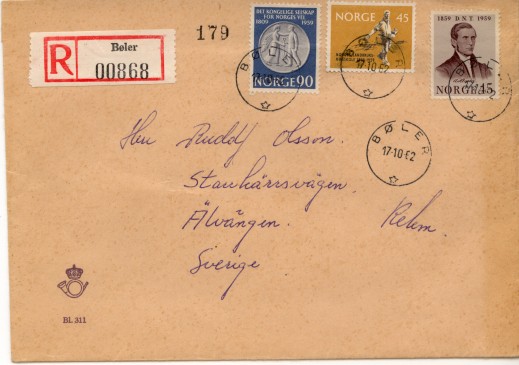 R
Bøler
00868
179
DET KONGELIGE SELSKAP
FOR NORGES VEL
1809 1959
NORGE 90
NORGE 45
1859 D.N.T 1959
NORGE 45
BØLER
17-10 62
BØLER
17-10 62
Herr Rudolf Olsson.
Älvängen.
Rekm.
Sverige
Bl. 311